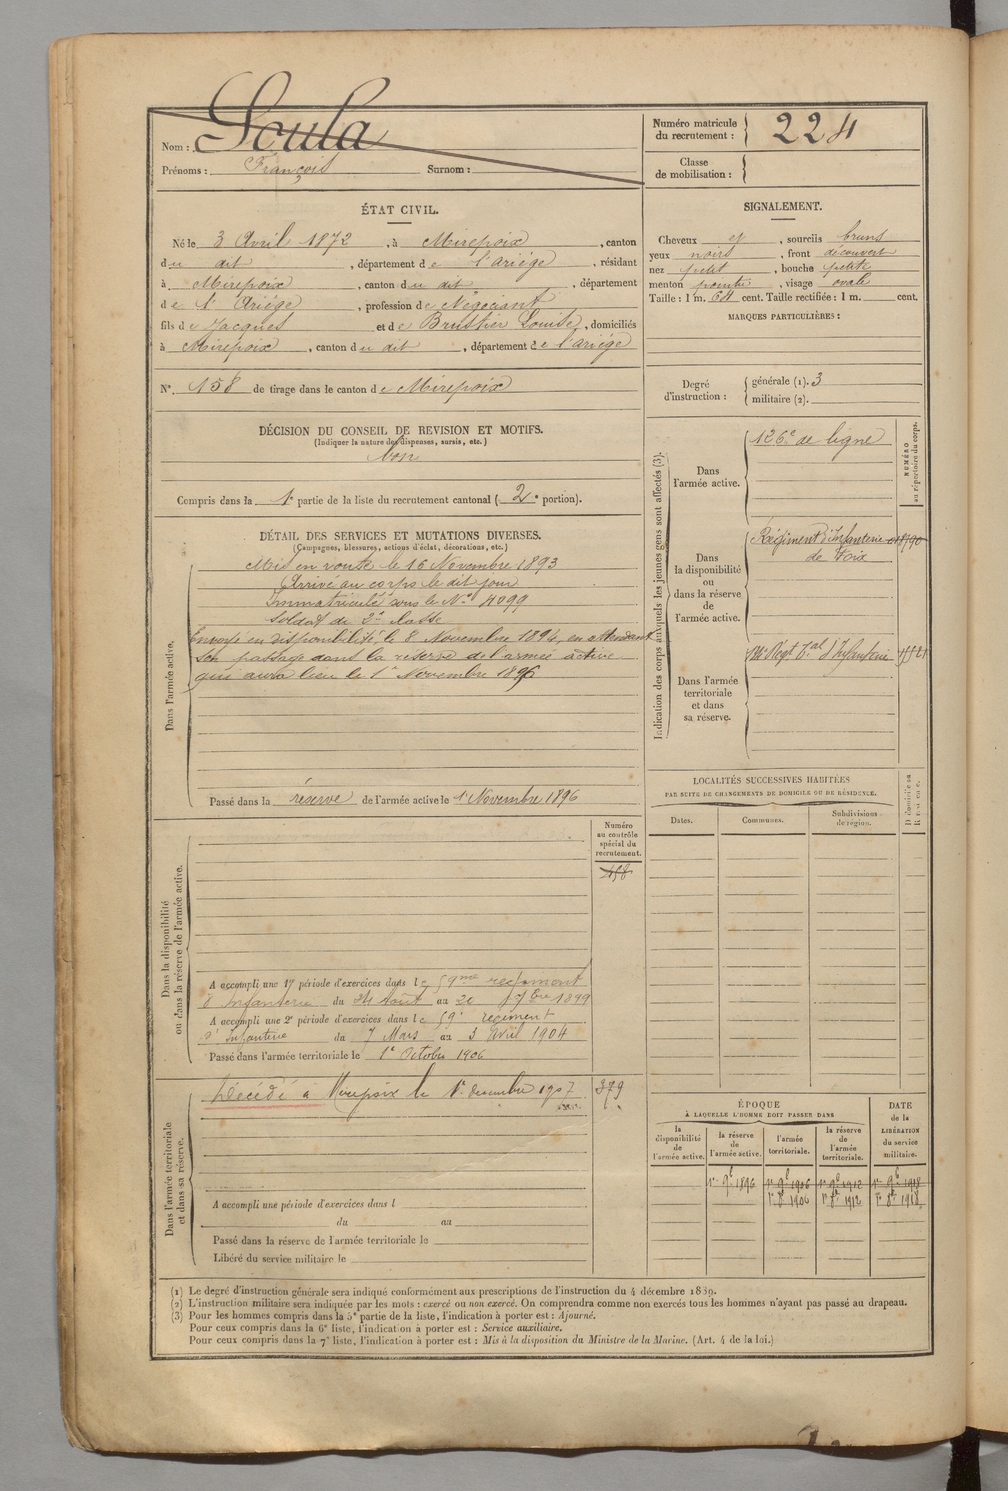 Nom : Soula
Prénoms : François Surnom :
Numéro matricule du recrutement : 224
Classe de mobilisation :
ÉTAT CIVIL.
Né le 3 Avril 1872, à Mirepoix, canton
du dit, département de l'Ariége, résidant
à Mirepoix, canton du dit, département
de l'Ariége, profession de Négociant
fils de Jacques et de Brustier Louise, domiciliés
à Mirepoix, canton du dit, département de l'ariége
N° 158 de tirage dans le canton de Mirepoix
DÉCISION DU CONSEIL DE REVISION ET MOTIFS.
(Indiquer la nature des dispenses, sursis, etc.)
bon
Compris dans la 1e partie de la liste du recrutement cantonal (2e portion).
SIGNALEMENT.
Cheveux et, sourcils bruns
yeux noirs, front découvert
nez petit, bouche petite
menton pointu, visage ovale
Taille : 1 m. 64 cent. Taille rectifiée : 1 m. cent.
MARQUES PARTICULIÈRES :
Degré d'instruction : générale (1). 3
militaire (2).
DÉTAIL DES SERVICES ET MUTATIONS DIVERSES.
(Campagnes, blessures, actions d'éclat, décorations, etc.)
Dans l'armée active.
Mis en route le 16 Novembre 1893
Arrivé au corps le dit jour
Immatriculé sous le N° 4099
Soldat de 2e classe
Envoyé en disponibilité le 8 Novembre 1894, en attendant
son passage dans la réserve de l'armée active
qui aura lieu le 1er Novembre 1896
Passé dans la réserve de l'armée active le 1er Novembre 1896
Indication des corps auxquels les jeunes gens sont affectés (3).
NUMÉRO au répertoire du corps.
Dans l'armée active.
126e de ligne
Dans la disponibilité ou dans la réserve de l'armée active.
Régiment d'Infanterie
de Foix
Dans l'armée territoriale et dans sa réserve.
LOCALITÉS SUCCESSIVES HABITÉES
PAR SUITE DE CHANGEMENTS DE DOMICILE OU DE RÉSIDENCE.
Dates. Communes. Subdivisions de région.
Dans la disponibilité ou dans la réserve de l'armée active.
Numéro au contrôle spécial du recrutement.
158
A accompli une 1re période d'exercices dans le 59me regiment
d'Infanterie du 24 Août au 20 7bre 1899
A accompli une 2e période d'exercices dans le 59e regiment
d'Infanterie du 7 Mars au 3 Avril 1904
Passé dans l'armée territoriale le 1er Octobre 1906
Dans l'armée territoriale et dans sa réserve.
Décédé à Mirepoix le 1er decembre 1907
379
A accompli une période d'exercices dans l
du au
Passé dans la réserve de l'armée territoriale le
Libéré du service militaire le
ÉPOQUE
À LAQUELLE L'HOMME DOIT PASSER DANS
DATE de la LIBÉRATION du service militaire.
la disponibilité de l'armée active. la réserve de l'armée active. l'armée territoriale. la réserve de l'armée territoriale.
1er 9e 1896 1er 9e 1906 1er 9e 1912 1er 9e 1918
1er 8e 1906 1er 8e 1912 1er 8e 1918
(1) Le degré d'instruction générale sera indiqué conformément aux prescriptions de l'instruction du 4 décembre 1889.
(2) L'instruction militaire sera indiquée par les mots : exercé ou non exercé. On comprendra comme non exercés tous les hommes n'ayant pas passé au drapeau.
(3) Pour les hommes compris dans la 5e partie de la liste, l'indication à porter est : Ajourné.
Pour ceux compris dans la 6e liste, l'indication à porter est : Service auxiliaire.
Pour ceux compris dans la 7e liste, l'indication à porter est : Mis à la disposition du Ministre de la Marine. (Art. 4 de la loi.)